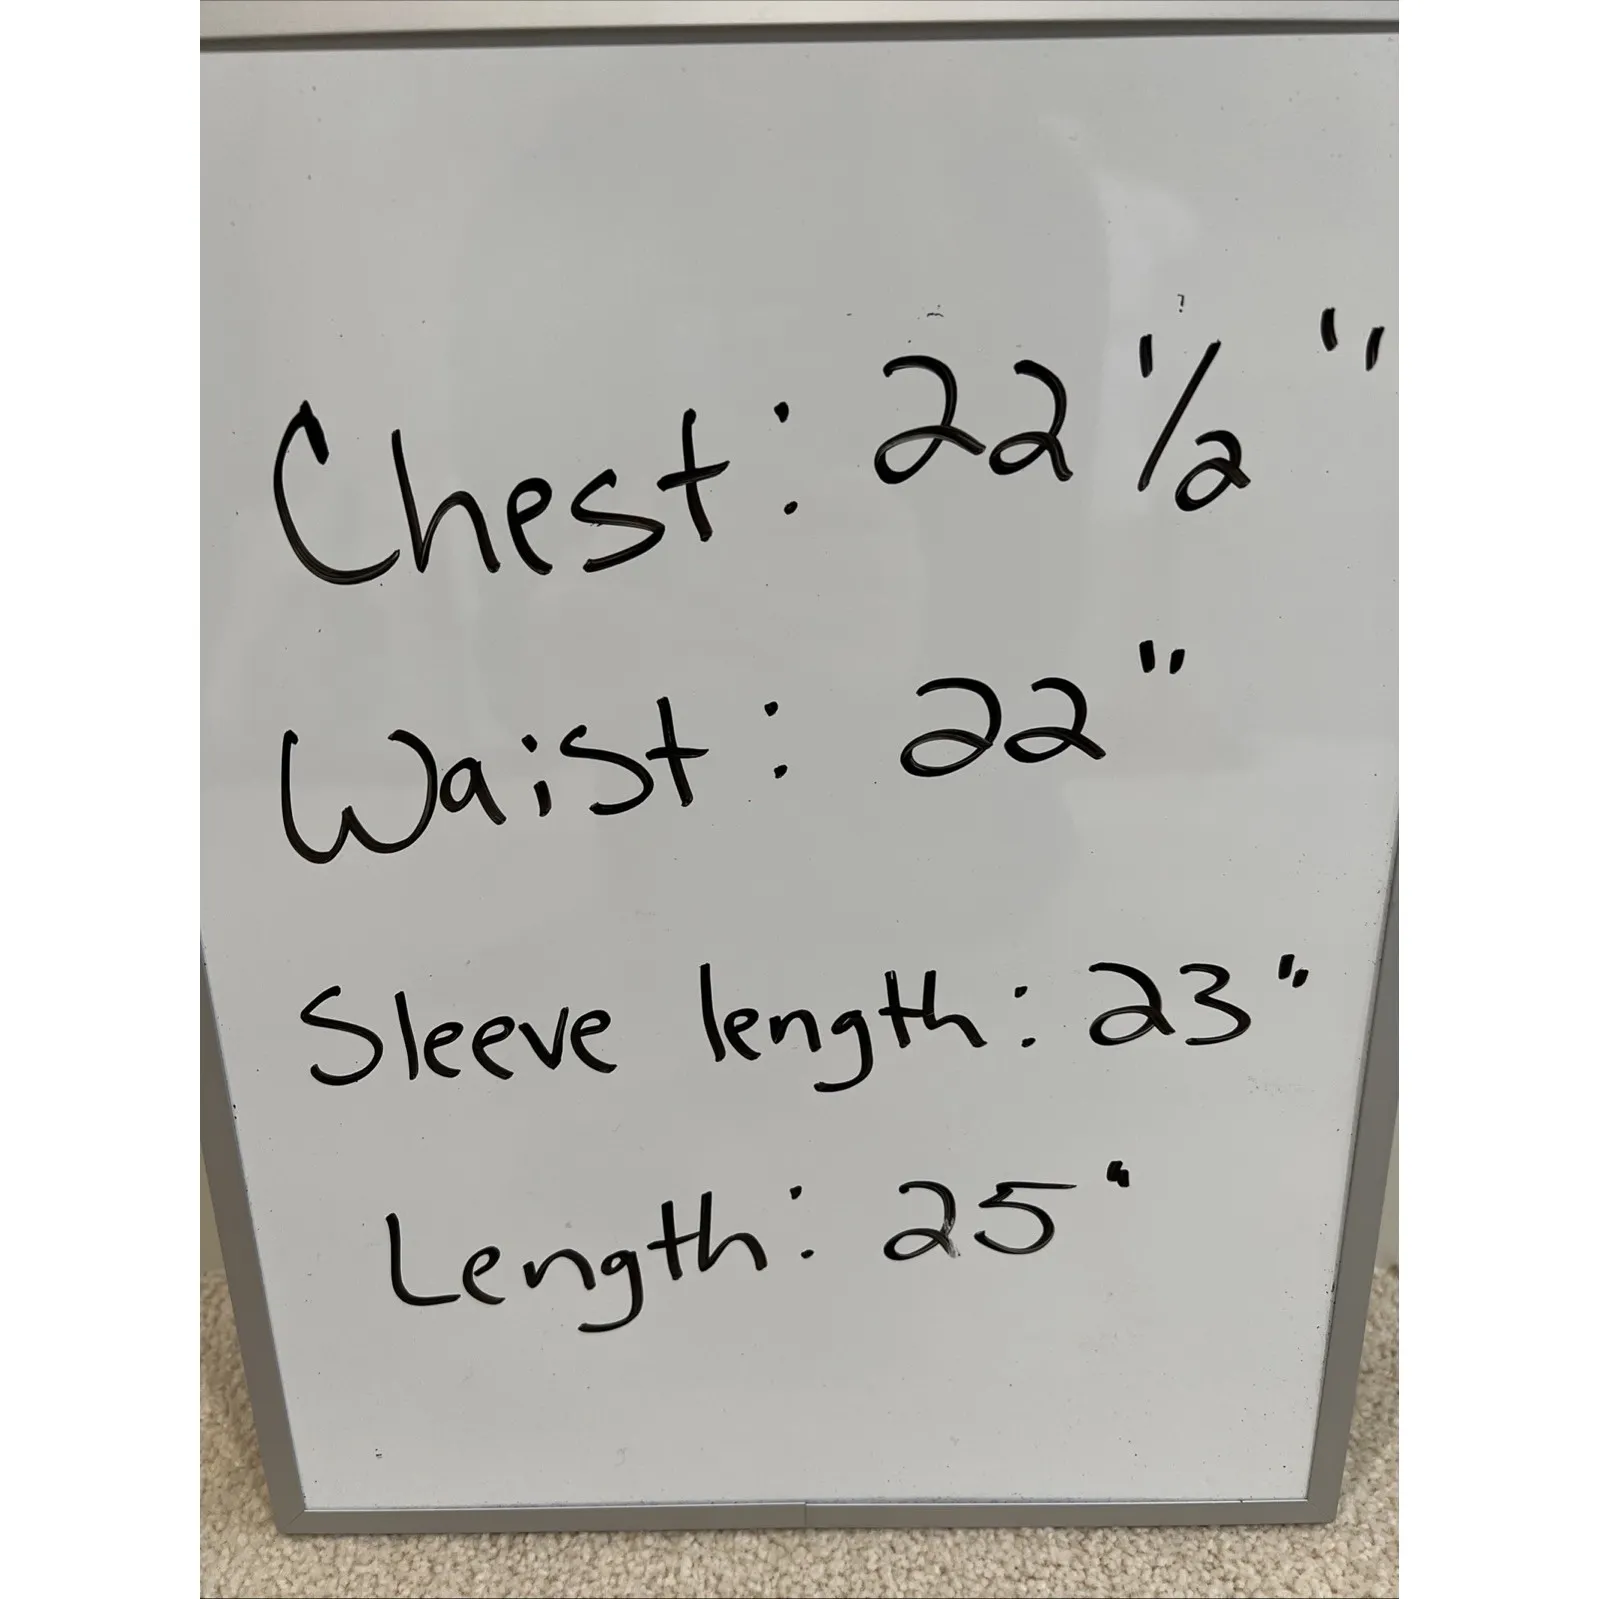 Chest: 22 1/2 "
Waist: 22"
Sleeve length: 23"
Length: 25"